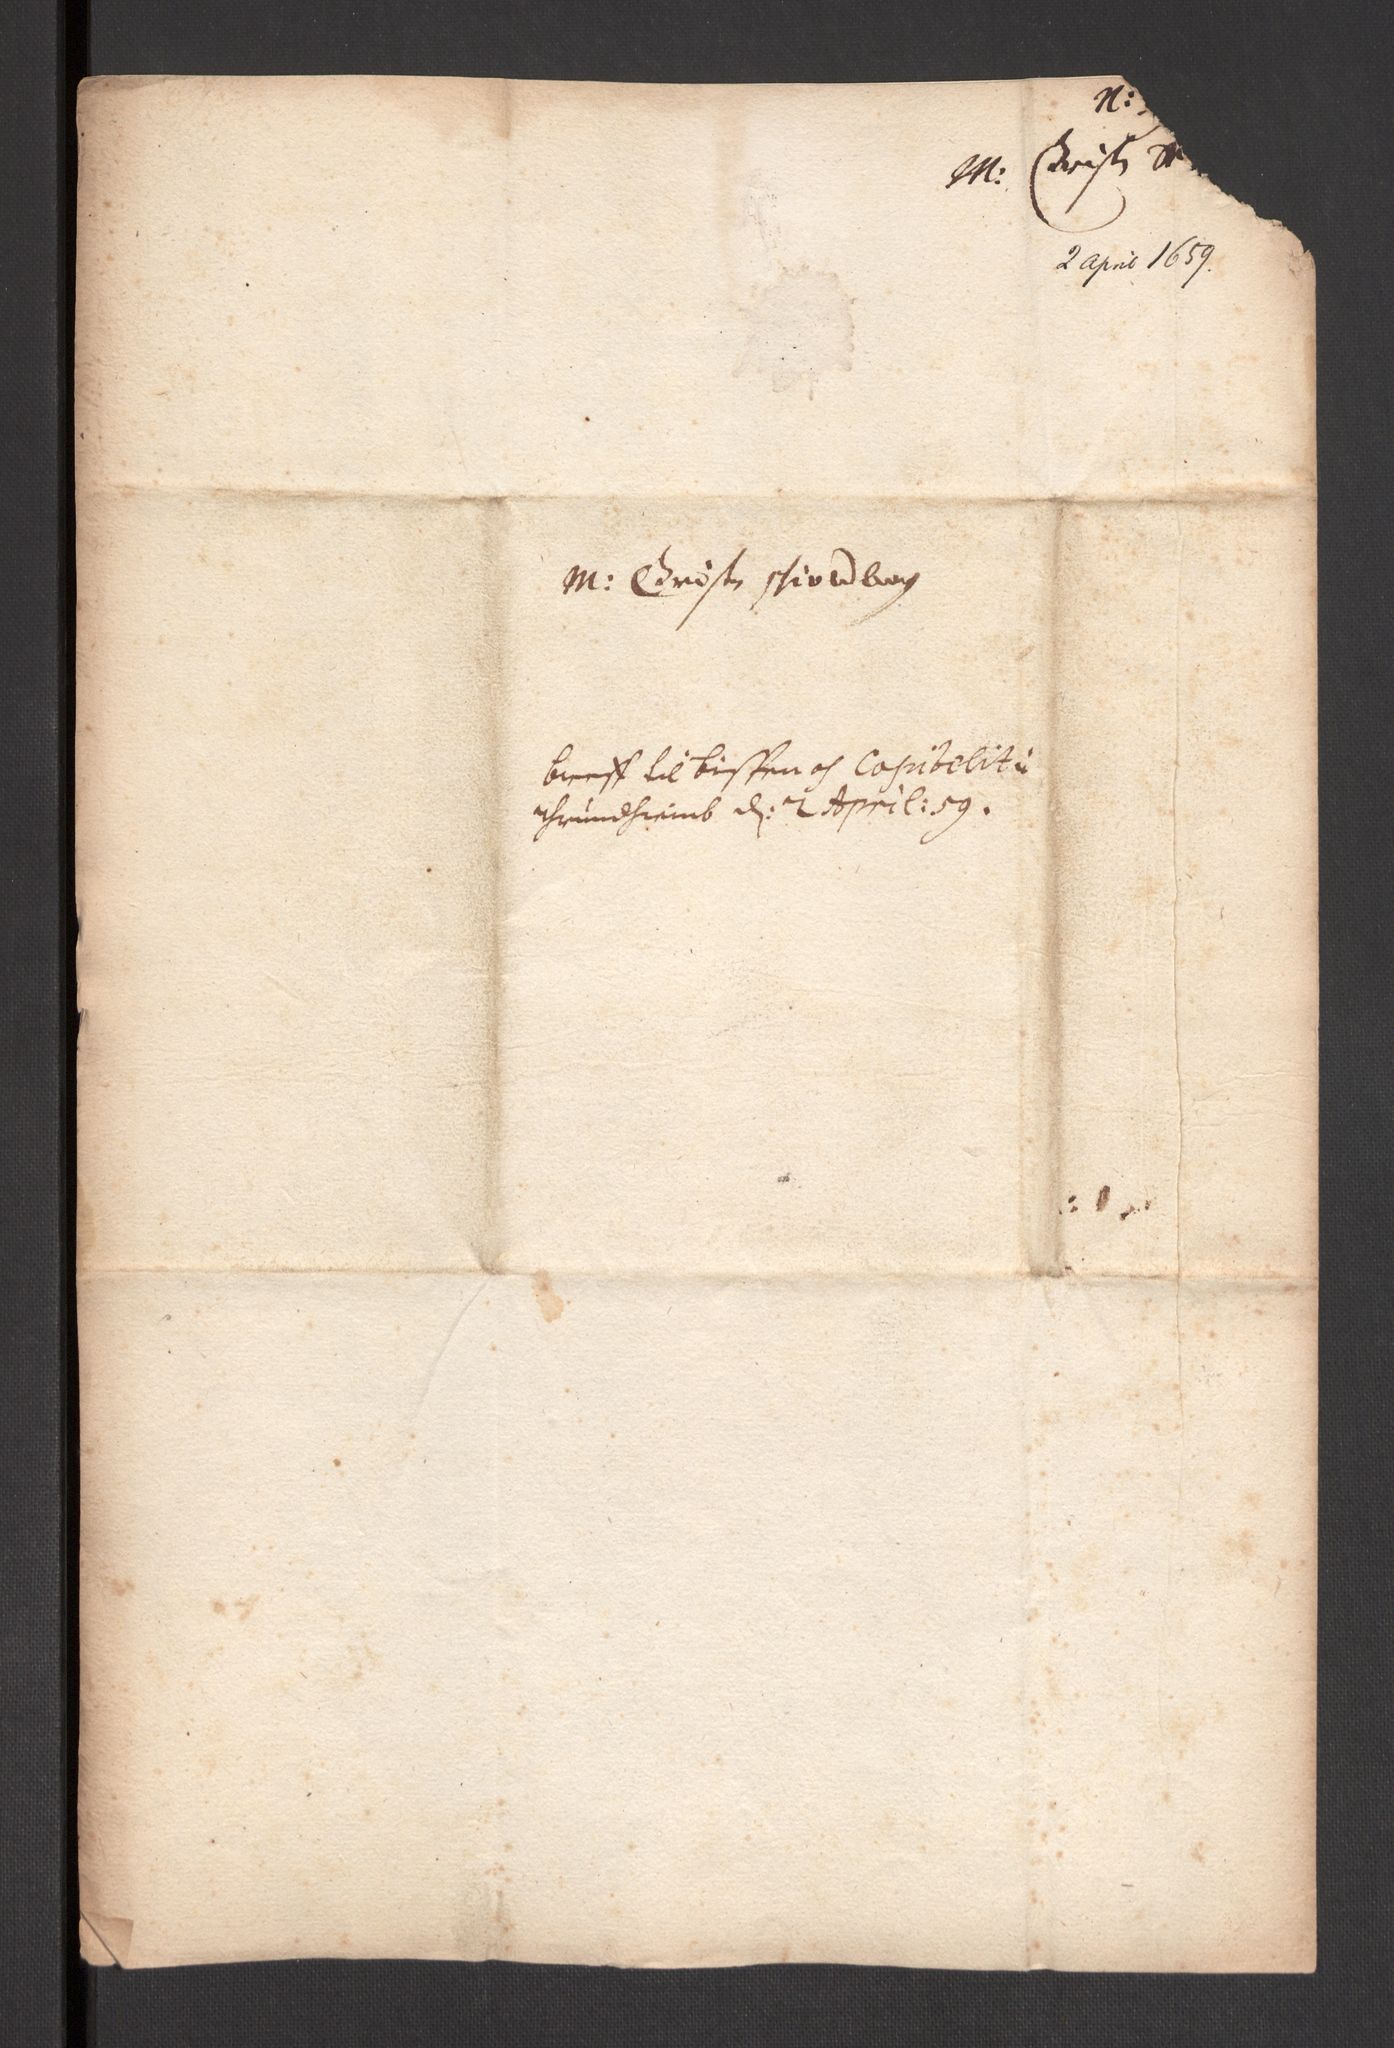 N:
M: Christ
2 April 1659.
M: Christ
breff til bispen oc Capitelit i
Thrundhiemb d: 2 April: 59.